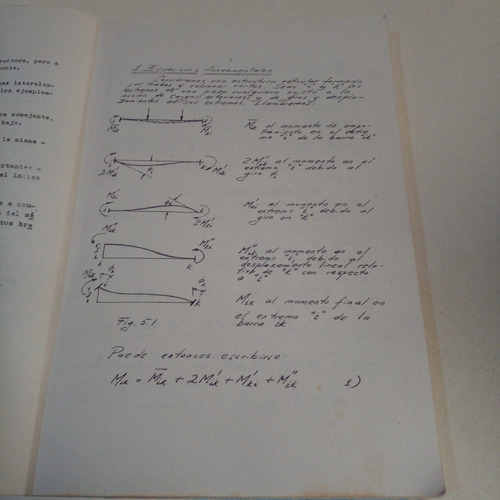 ructura, pero a
mento.
gas laterales.
los ejemplos
ra semejante,
bajo.
la misma -
ortantes -
el inciso
s a con-
n del nú
tos bra
1. Ecuaciones fundamentales
Consideremos una estructura reticular formada
por trabes y columnas rectas. Sean "i" y "k" los
extremos de una pieza cualquiera sujeta a la
acción de cargas exteriores y de giros y despla-
zamientos de sus extremos. Llamaremos:
M̅ik al momento de empo-
tramiento en el extre-
mo "i" de la barra ik
2M'ik al momento en el
extremo "i" debido al
giro
M'ki al momento en el
extremo "i" debido al
giro en "k"
M''ik al momento en el
extremo "i" debido al
desplazamiento lineal rela-
tivo de "k" con respecto
a "i"
Mik al momento final en
el extremo "i" de la
barra ik
Fig. 5.1
Puede entonces escribirse:
Mik = M̅ik + 2M'ik + M'ki + M''ik 1)